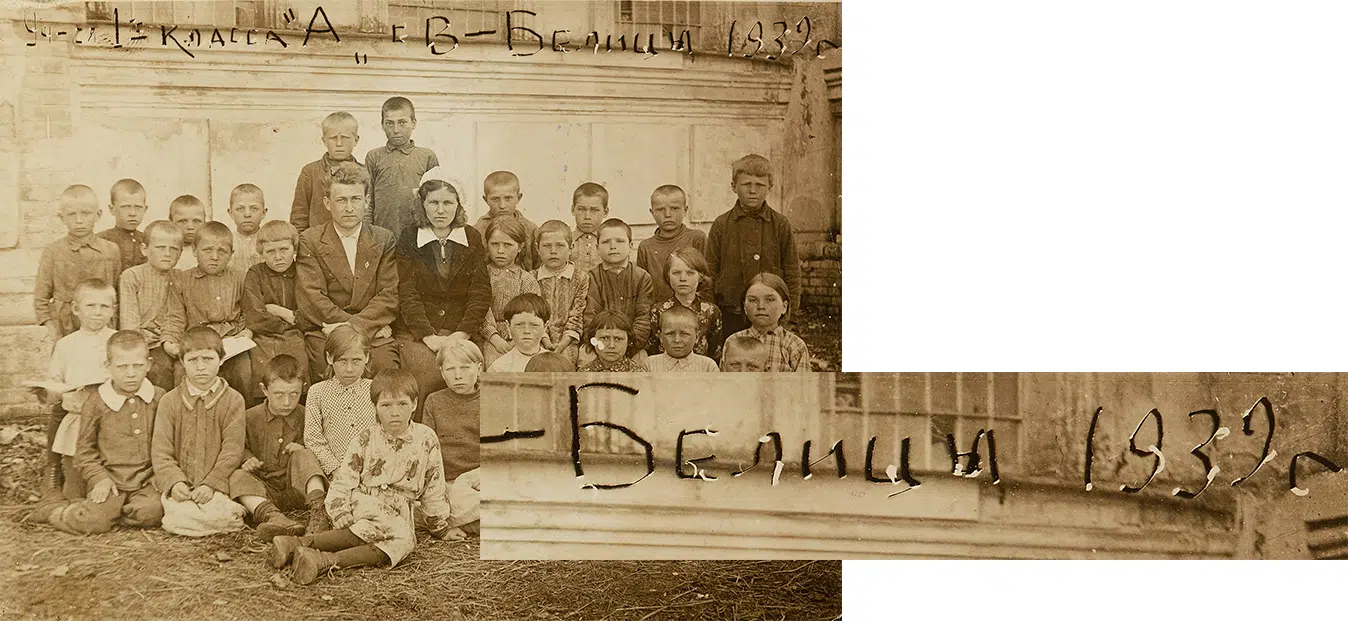 Уч-ся 1го класса "А„ с В-Белицы 1939г
-Белицы 1939г